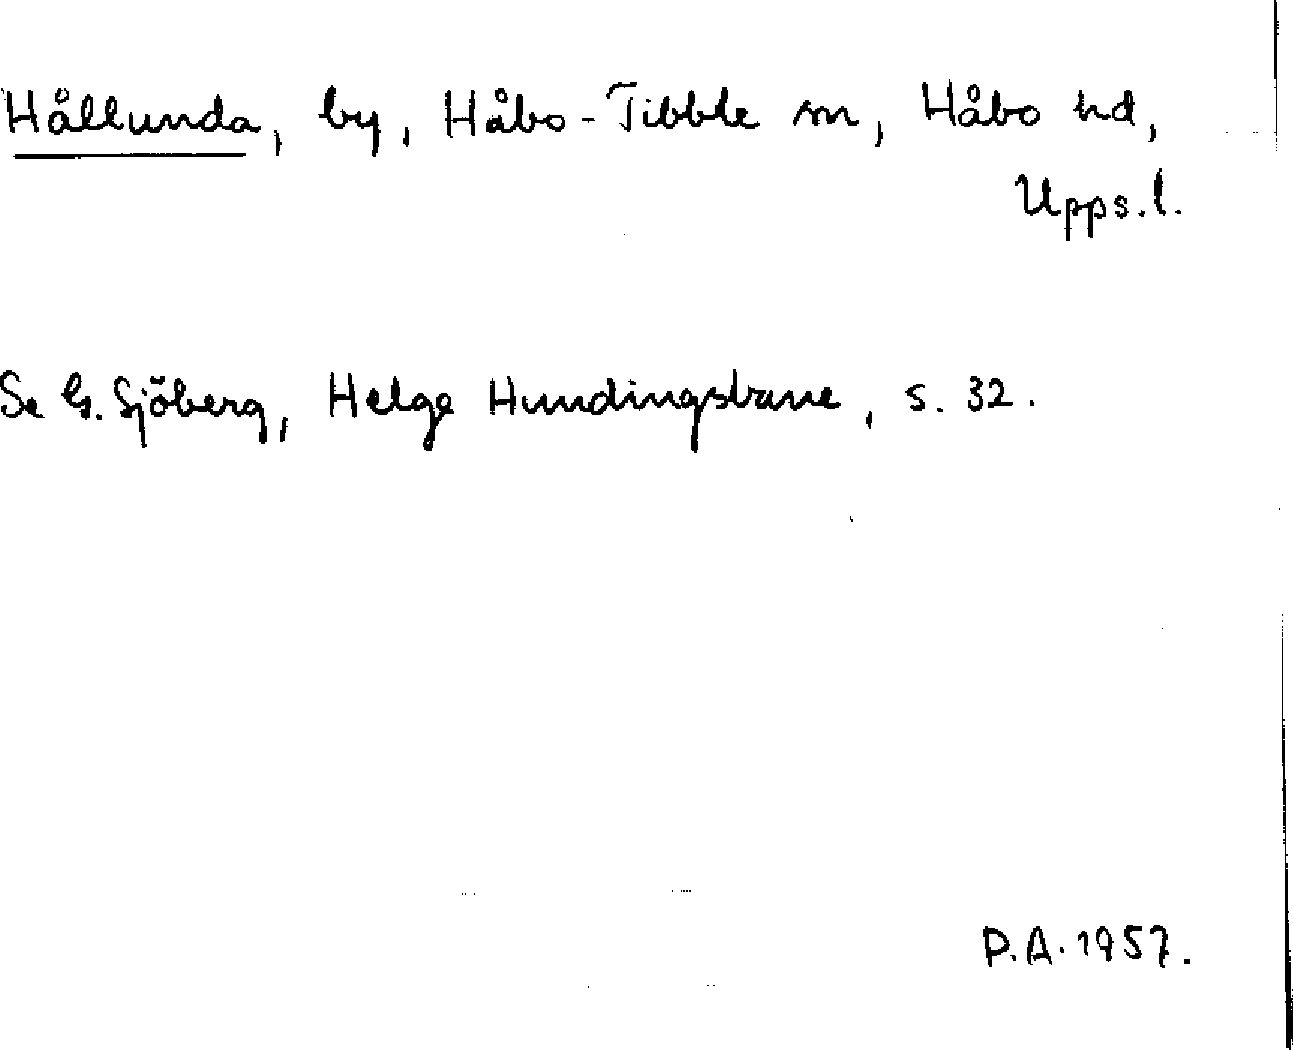 Hållunda, by, Håbo-Tibble sn, Håbo hd,
Upps.l.
Se G. Sjöberg, Helge Hundingsbane, s. 32.
P.A. 1957.